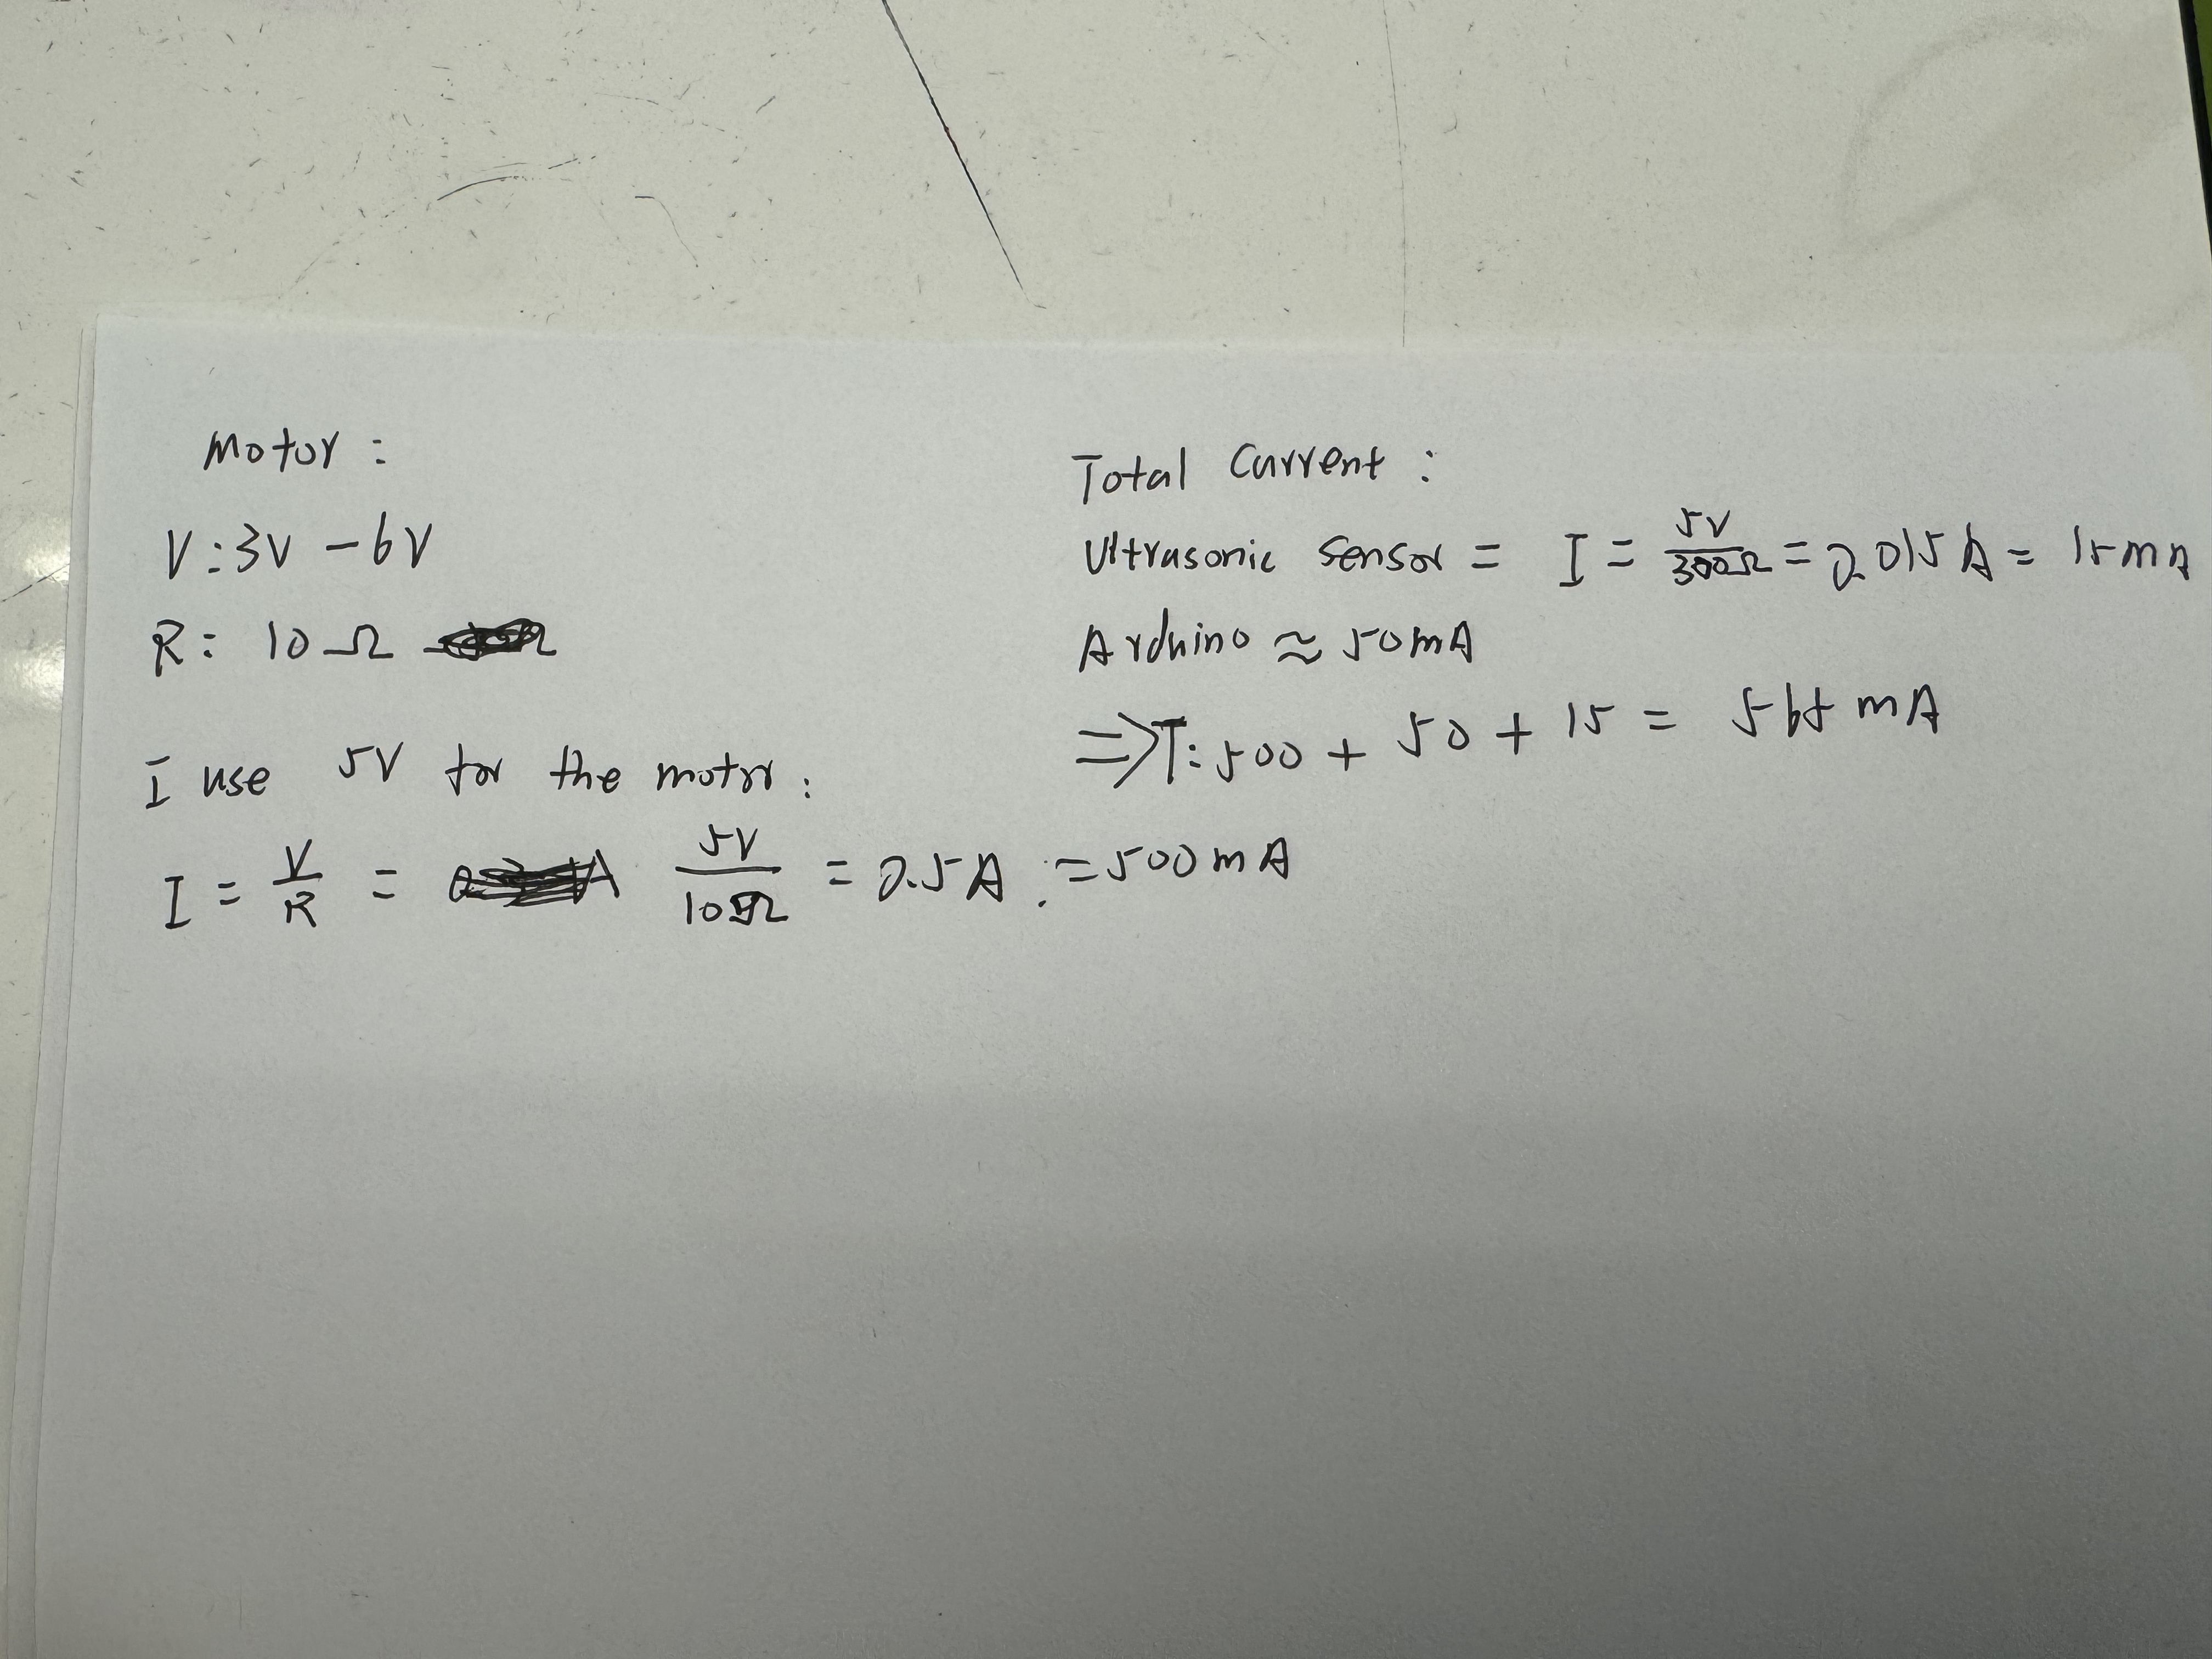 Motor :
V : 3V - 6V
R : 10 Ω
I use 5V for the motor :
I = V/R = 5V/10Ω = 0.5A . = 500mA
Total Current :
Ultrasonic Sensor = I = 5V/300Ω = 0.015A = 15mA
Arduino ≈ 50mA
⇒ T: 500 + 50 + 15 = 565 mA